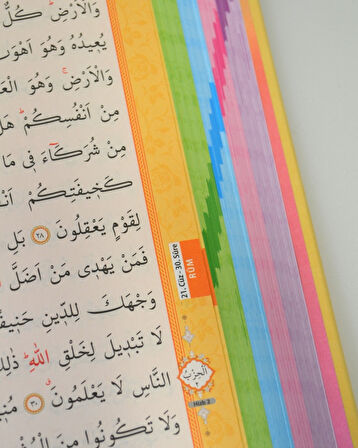 وَالْاَرْضِ كُلٌّ
يُعِيدُهُ وَهُوَ اَهْوَنُ
وَالْاَرْضِ وَهُوَ الْعَ
مِنْ اَنْفُسِكُمْ هَلْ
مِنْ شُرَكَٓاءَ فِي مَا
كَخِيفَتِكُمْ اَنْفُ
لِقَوْمٍ يَعْقِلُونَ ٢٨ بَلِ
فَمَنْ يَهْدِي مَنْ اَضَلَّ
وَجْهَكَ لِلدِّينِ حَنِيفًا
لَا تَبْدِيلَ لِخَلْقِ اللّٰهِ ذٰلِكَ
النَّاسِ لَا يَعْلَمُونَ ٣٠ مُنِيبِ
وَلَا تَكُونُوا مِنَ الْمُشْ
21. Cüz - 30. Sûre
RÛM
اَلْحِزْبُ
٢
Hizb 2